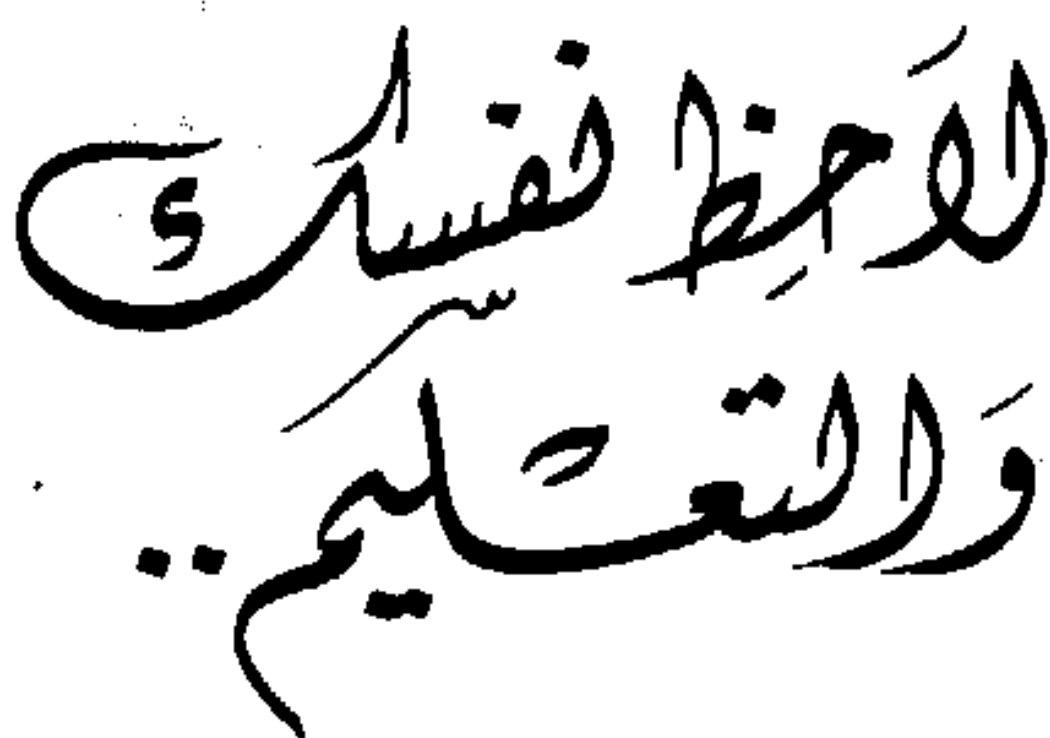 لاَحِظ نفسك
وَالتعليم..